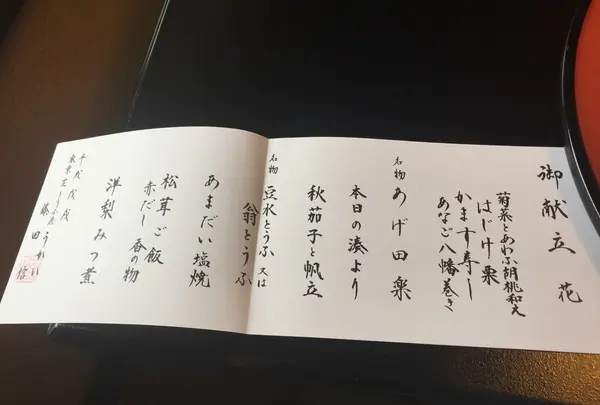 御献立 花
菊菜とあわふ胡桃和え
はじけ栗
かます寿し
あなご八幡巻き
名物 あげ田楽
本日の湊より
秋茄子と帆立
名物 豆水とうふ 又は
翁とうふ
あまだい塩焼
松茸ご飯
赤だし 香の物
洋梨みつ煮
平成戊戌
東京芝とうふ屋うかい
藤田